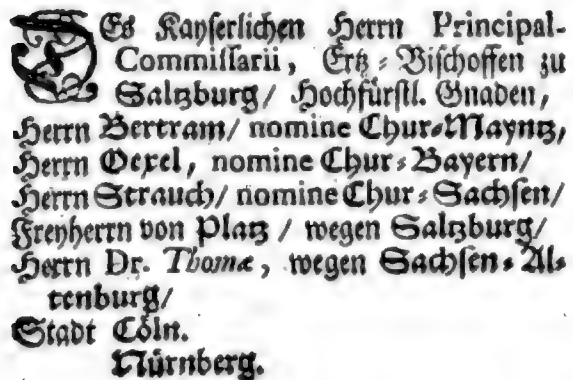 DEs Kayserlichen Herrn Principal-
Commissarii, Ertz-Bischoffen zu
Saltzburg/ Hochfürstl. Gnaden,
Herrn Bertram/ nomine Chur-Mayntz,
Herrn Oexel, nomine Chur-Bayern/
Herrn Strauch/ nomine Chur-Sachsen/
Freyherrn von Platz / wegen Saltzburg/
Herrn Dr. Thomæ, wegen Sachsen-Al-
tenburg/
Stadt Cöln.
Nürnberg.